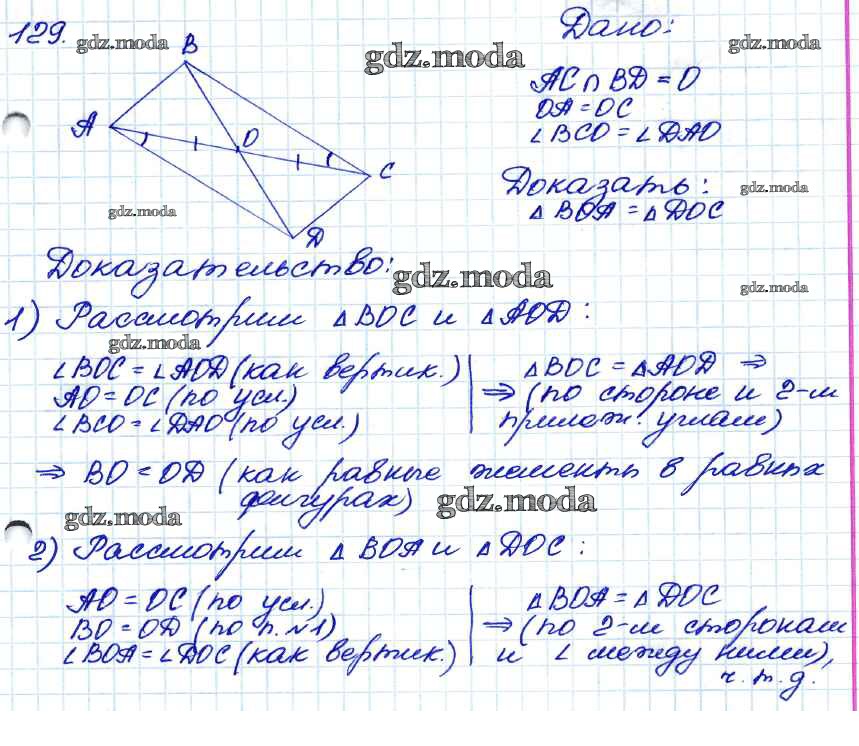 129.
gdz.moda
B
gdz.moda
Дано:
gdz.moda
AC ∩ BD = O
OA = OC
∠BCO = ∠DAO
A
O
C
D
Доказать:
gdz.moda
gdz.moda
△BOA = △DOC
Доказательство:
gdz.moda
gdz.moda
1) Рассмотрим △BOC и △AOD:
gdz.moda
∠BOC = ∠AOD (как вертик.)
AO = OC (по усл.)
∠BCO = ∠DAO (по усл.)
△BOC = △AOD ⇒
⇒ (по стороне и 2-м
прилеж. углам)
⇒ BO = OD (как равные элементы в равных
фигурах)
gdz.moda
gdz.moda
2) Рассмотрим △BOA и △DOC:
AO = OC (по усл.)
BO = OD (по п. №1)
∠BOA = ∠DOC (как вертик.)
△BOA = △DOC
⇒ (по 2-м сторонам
и ∠ между ними),
ч.т.д.